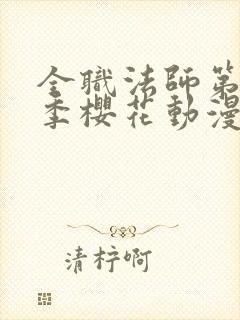 全職法師第
季櫻花動漫
清梓啊